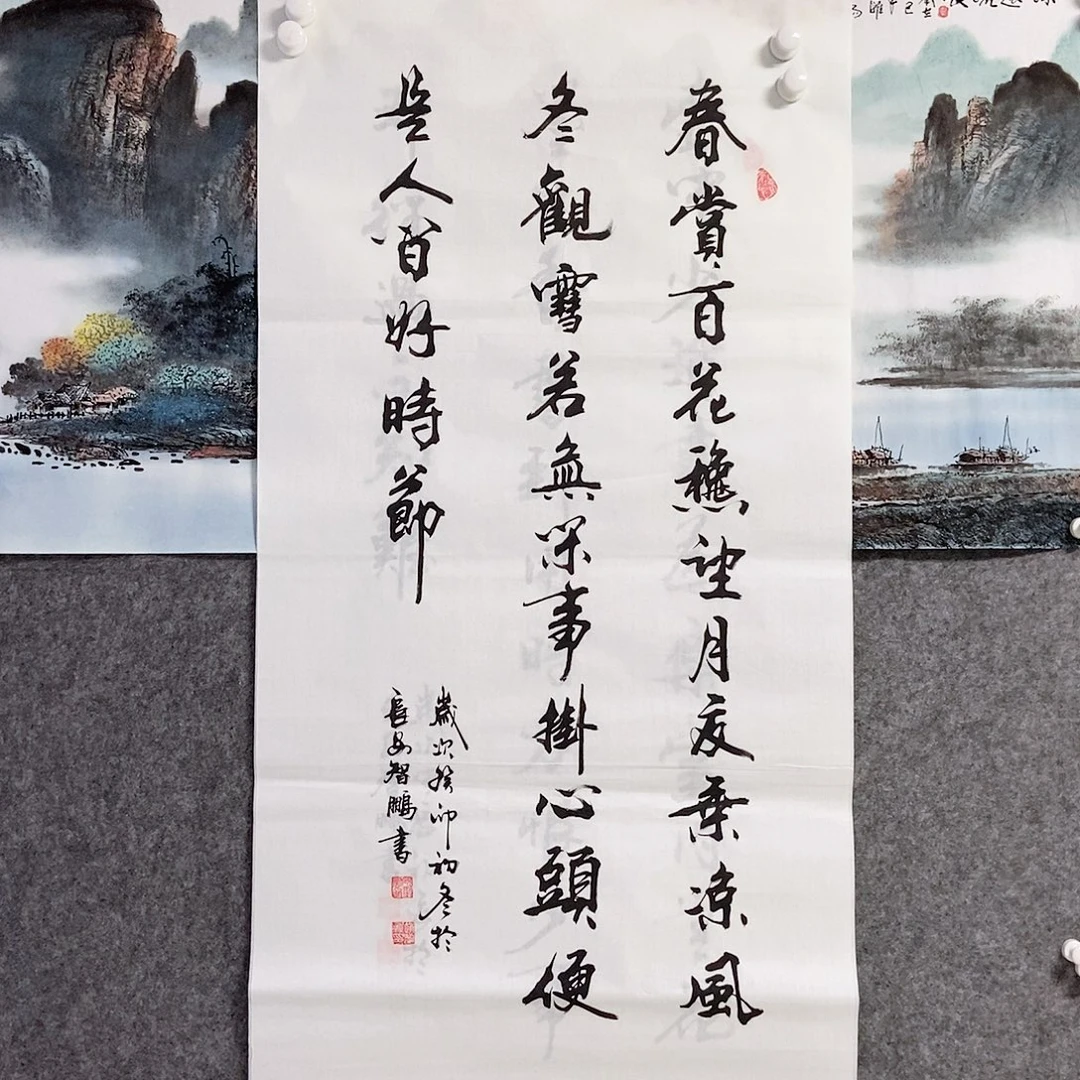 春賞百花穐望月夏乘涼風
冬觀雪若無闲事掛心頭便
是人间好時節
歲次癸卯初冬於
長安智鵬書